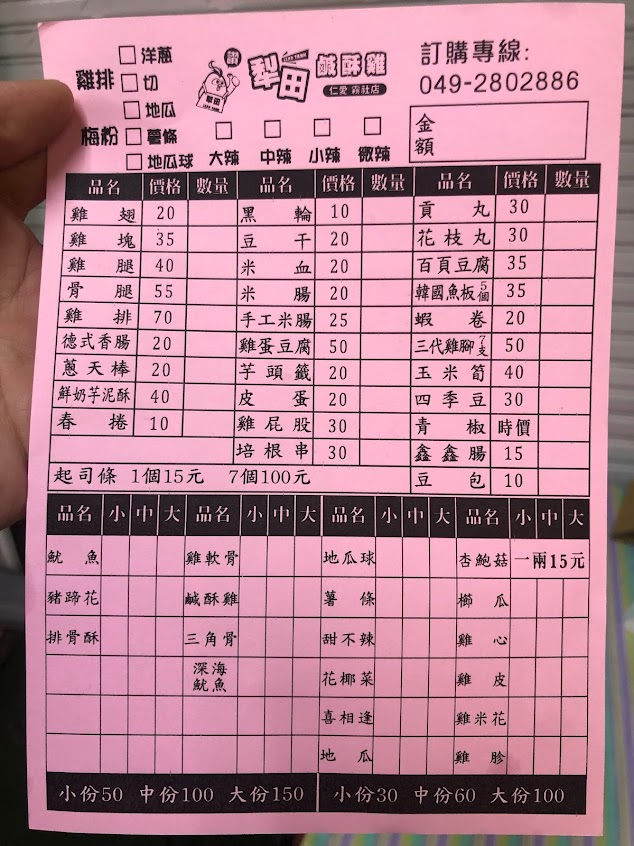 洋蔥
雞排 切
地瓜
梅粉 薯條
地瓜球
犁田 鹹酥雞
仁愛 霧社店
大辣 中辣 小辣 微辣
訂購專線:
049-2802886
金額
品名 價格 數量 品名 價格 數量 品名 價格 數量
雞翅 20 黑輪 10 貢丸 30
雞塊 35 豆干 20 花枝丸 30
雞腿 40 米血 20 百頁豆腐 35
骨腿 55 米腸 20 韓國魚板5個 35
雞排 70 手工米腸 25 蝦卷 20
德式香腸 20 雞蛋豆腐 50 三代雞腳7支 50
蔥天棒 20 芋頭籤 20 玉米筍 40
鮮奶芋泥酥 40 皮蛋 20 四季豆 30
春捲 10 雞屁股 30 青椒 時價
培根串 30 鑫鑫腸 15
起司條 1個15元 7個100元 豆包 10
品名 小 中 大 品名 小 中 大 品名 小 中 大 品名 小 中 大
魷魚 雞軟骨 地瓜球 杏鮑菇 一兩15元
豬蹄花 鹹酥雞 薯條 櫛瓜
排骨酥 三角骨 甜不辣 雞心
深海魷魚 花椰菜 雞皮
喜相逢 雞米花
地瓜 雞胗
小份50 中份100 大份150 小份30 中份60 大份100